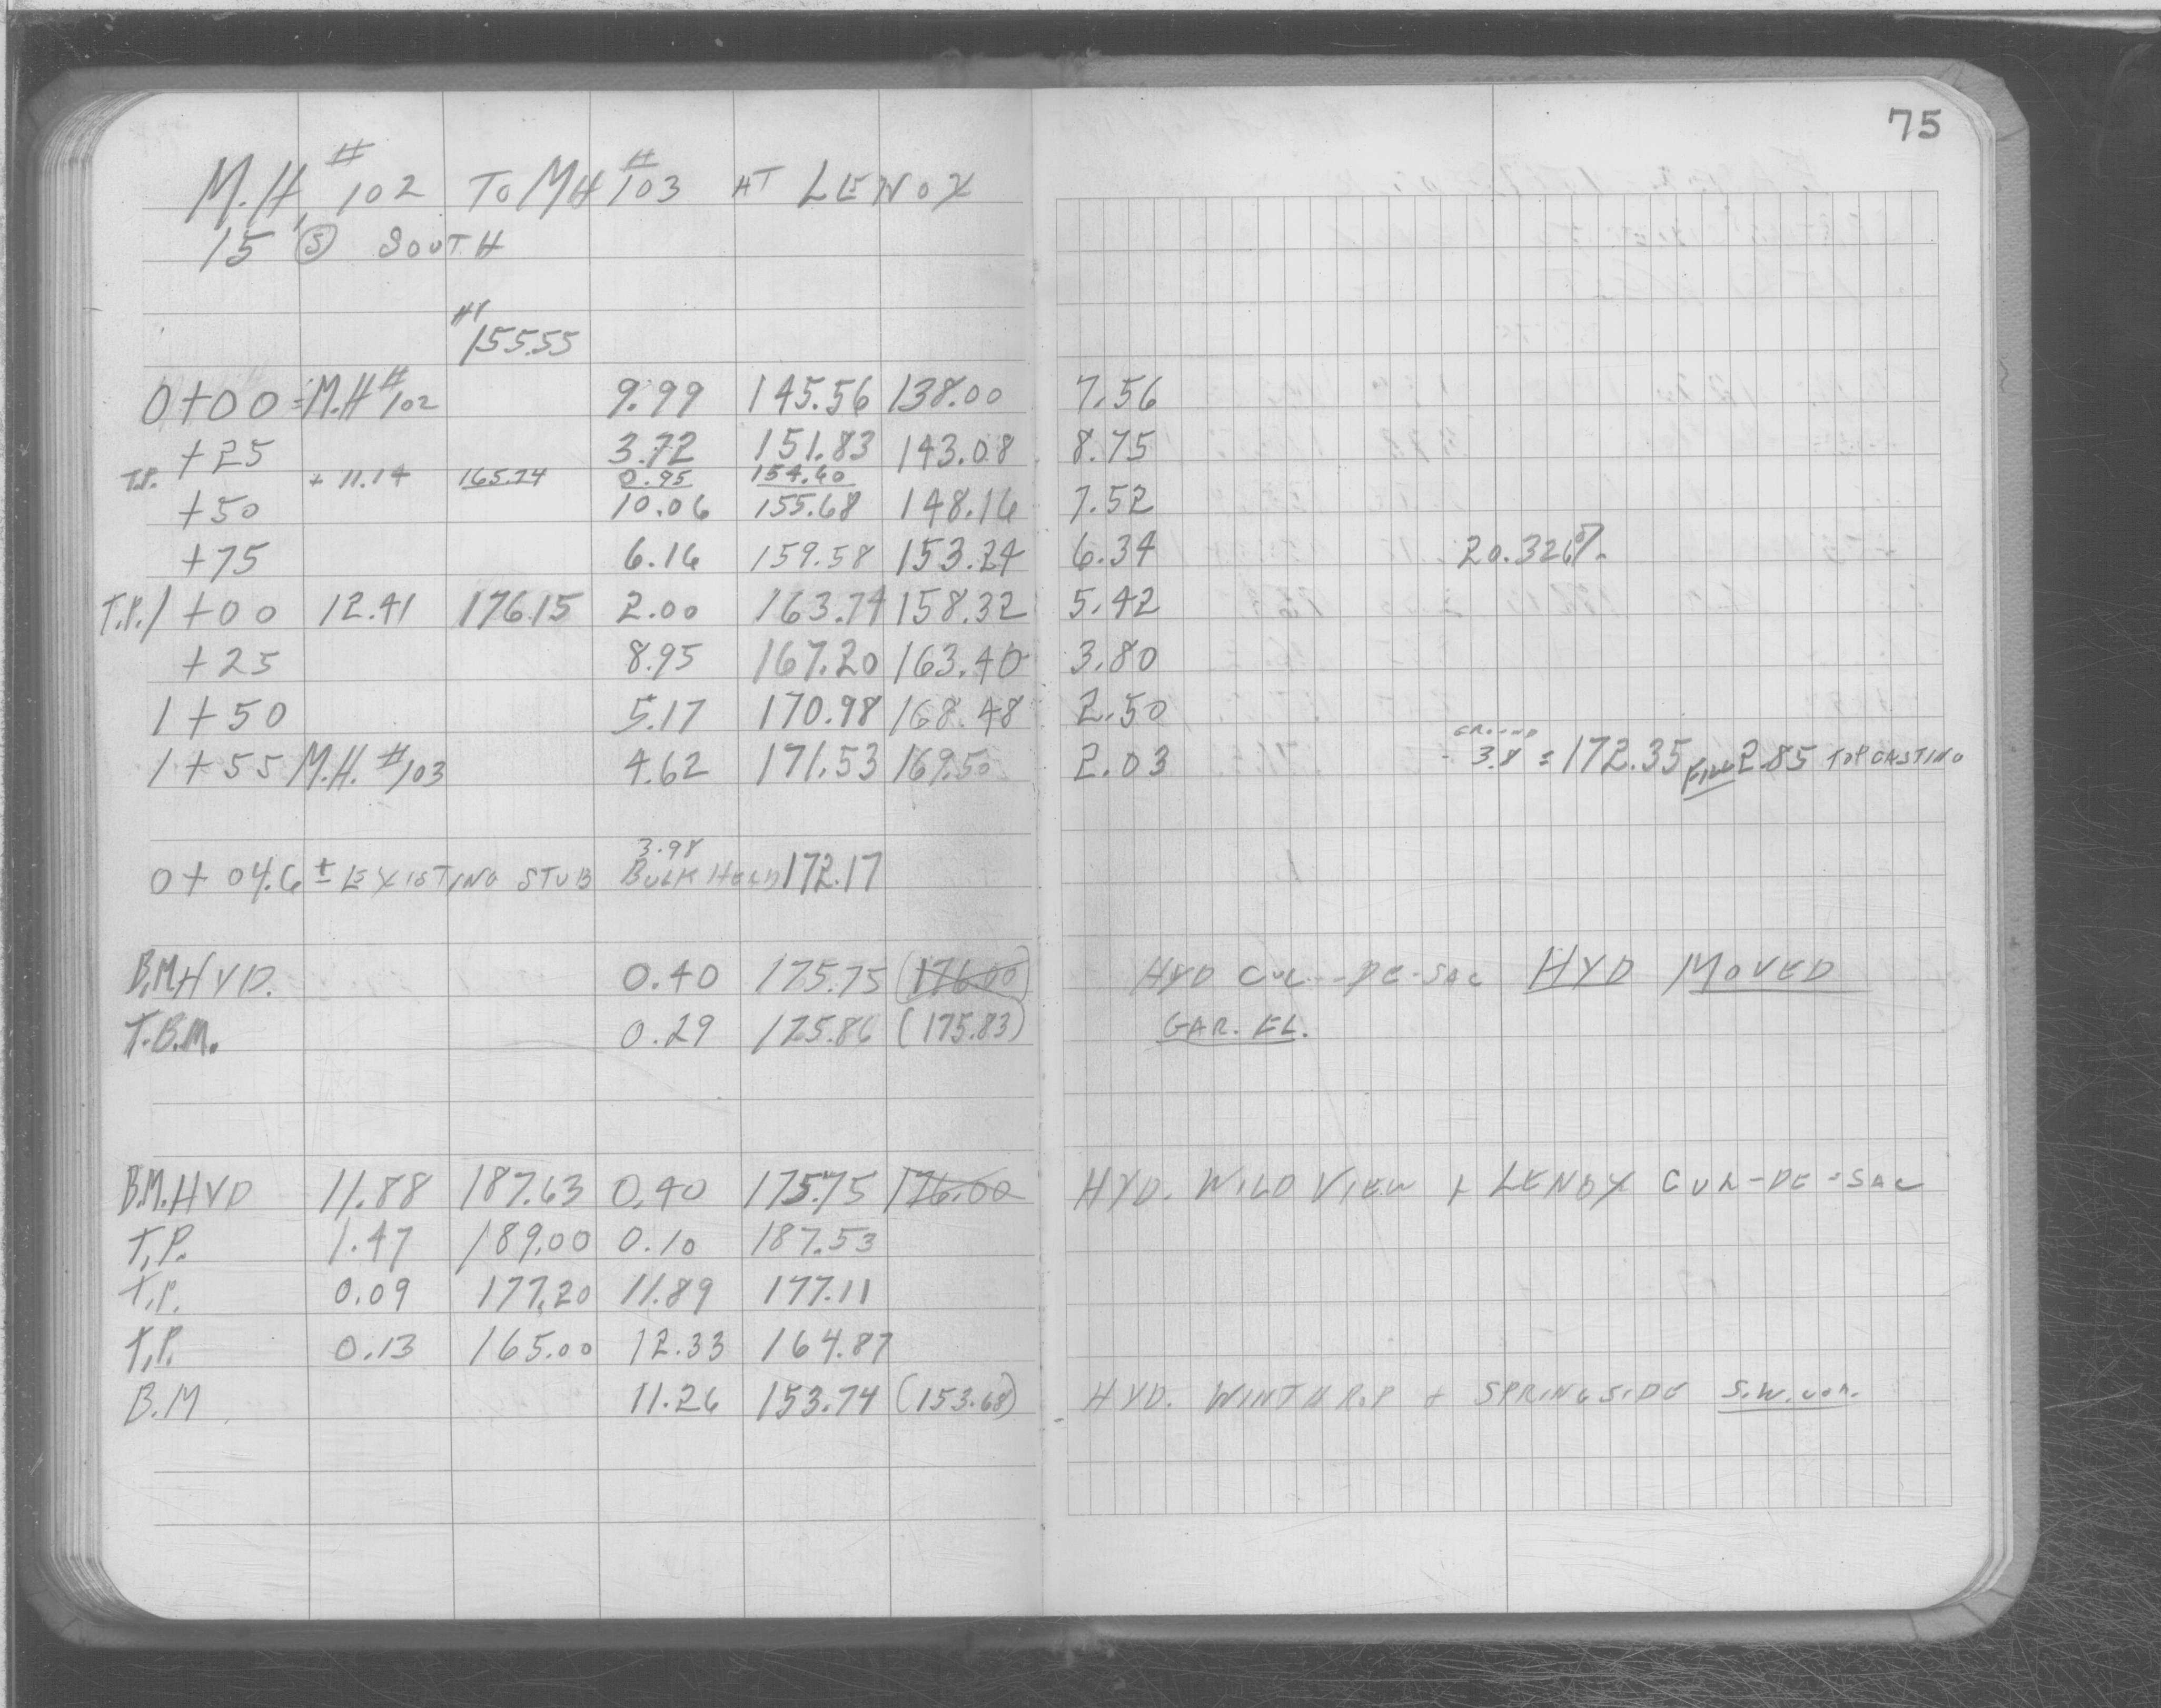 75
M.H. #102 TO MH #103 AT LENOX
15' (S) SOUTH
HI
155.55
0+00 = M.H #102 9.99 145.56 138.00 7.56
+25 3.72 151.83 143.08 8.75
T.P. + 11.14 165.74 0.95 154.60
+50 10.06 155.68 148.16 7.52
+75 6.16 159.58 153.24 6.34 20.326%
T.P. 1+00 12.41 176.15 2.00 163.74 158.32 5.42
+25 8.95 167.20 163.40 3.80
1+50 5.17 170.98 168.48 2.50
GROUND
1+55 M.H. #103 4.62 171.53 169.50 2.03 - 3.8 = 172.35 2.85 TOP CASTING
3.98
0+04.6 ± EXISTING STUB BULK HEAD 172.17
B.M. HYD. 0.40 175.75 (176.00) HYD CUL-DE-SAC HYD MOVED
T.B.M. 0.29 175.86 (175.83) GAR. EL.
B.M. HYD 11.88 187.63 0.40 175.75 176.00 HYD. WILD VIEW + LENOX CUL-DE-SAC
T.P. 1.47 189.00 0.10 187.53
T.P. 0.09 177.20 11.89 177.11
T.P. 0.13 165.00 12.33 164.87
B.M 11.26 153.74 (153.68) HYD. WINTHROP + SPRINGSIDE S.W. COR.